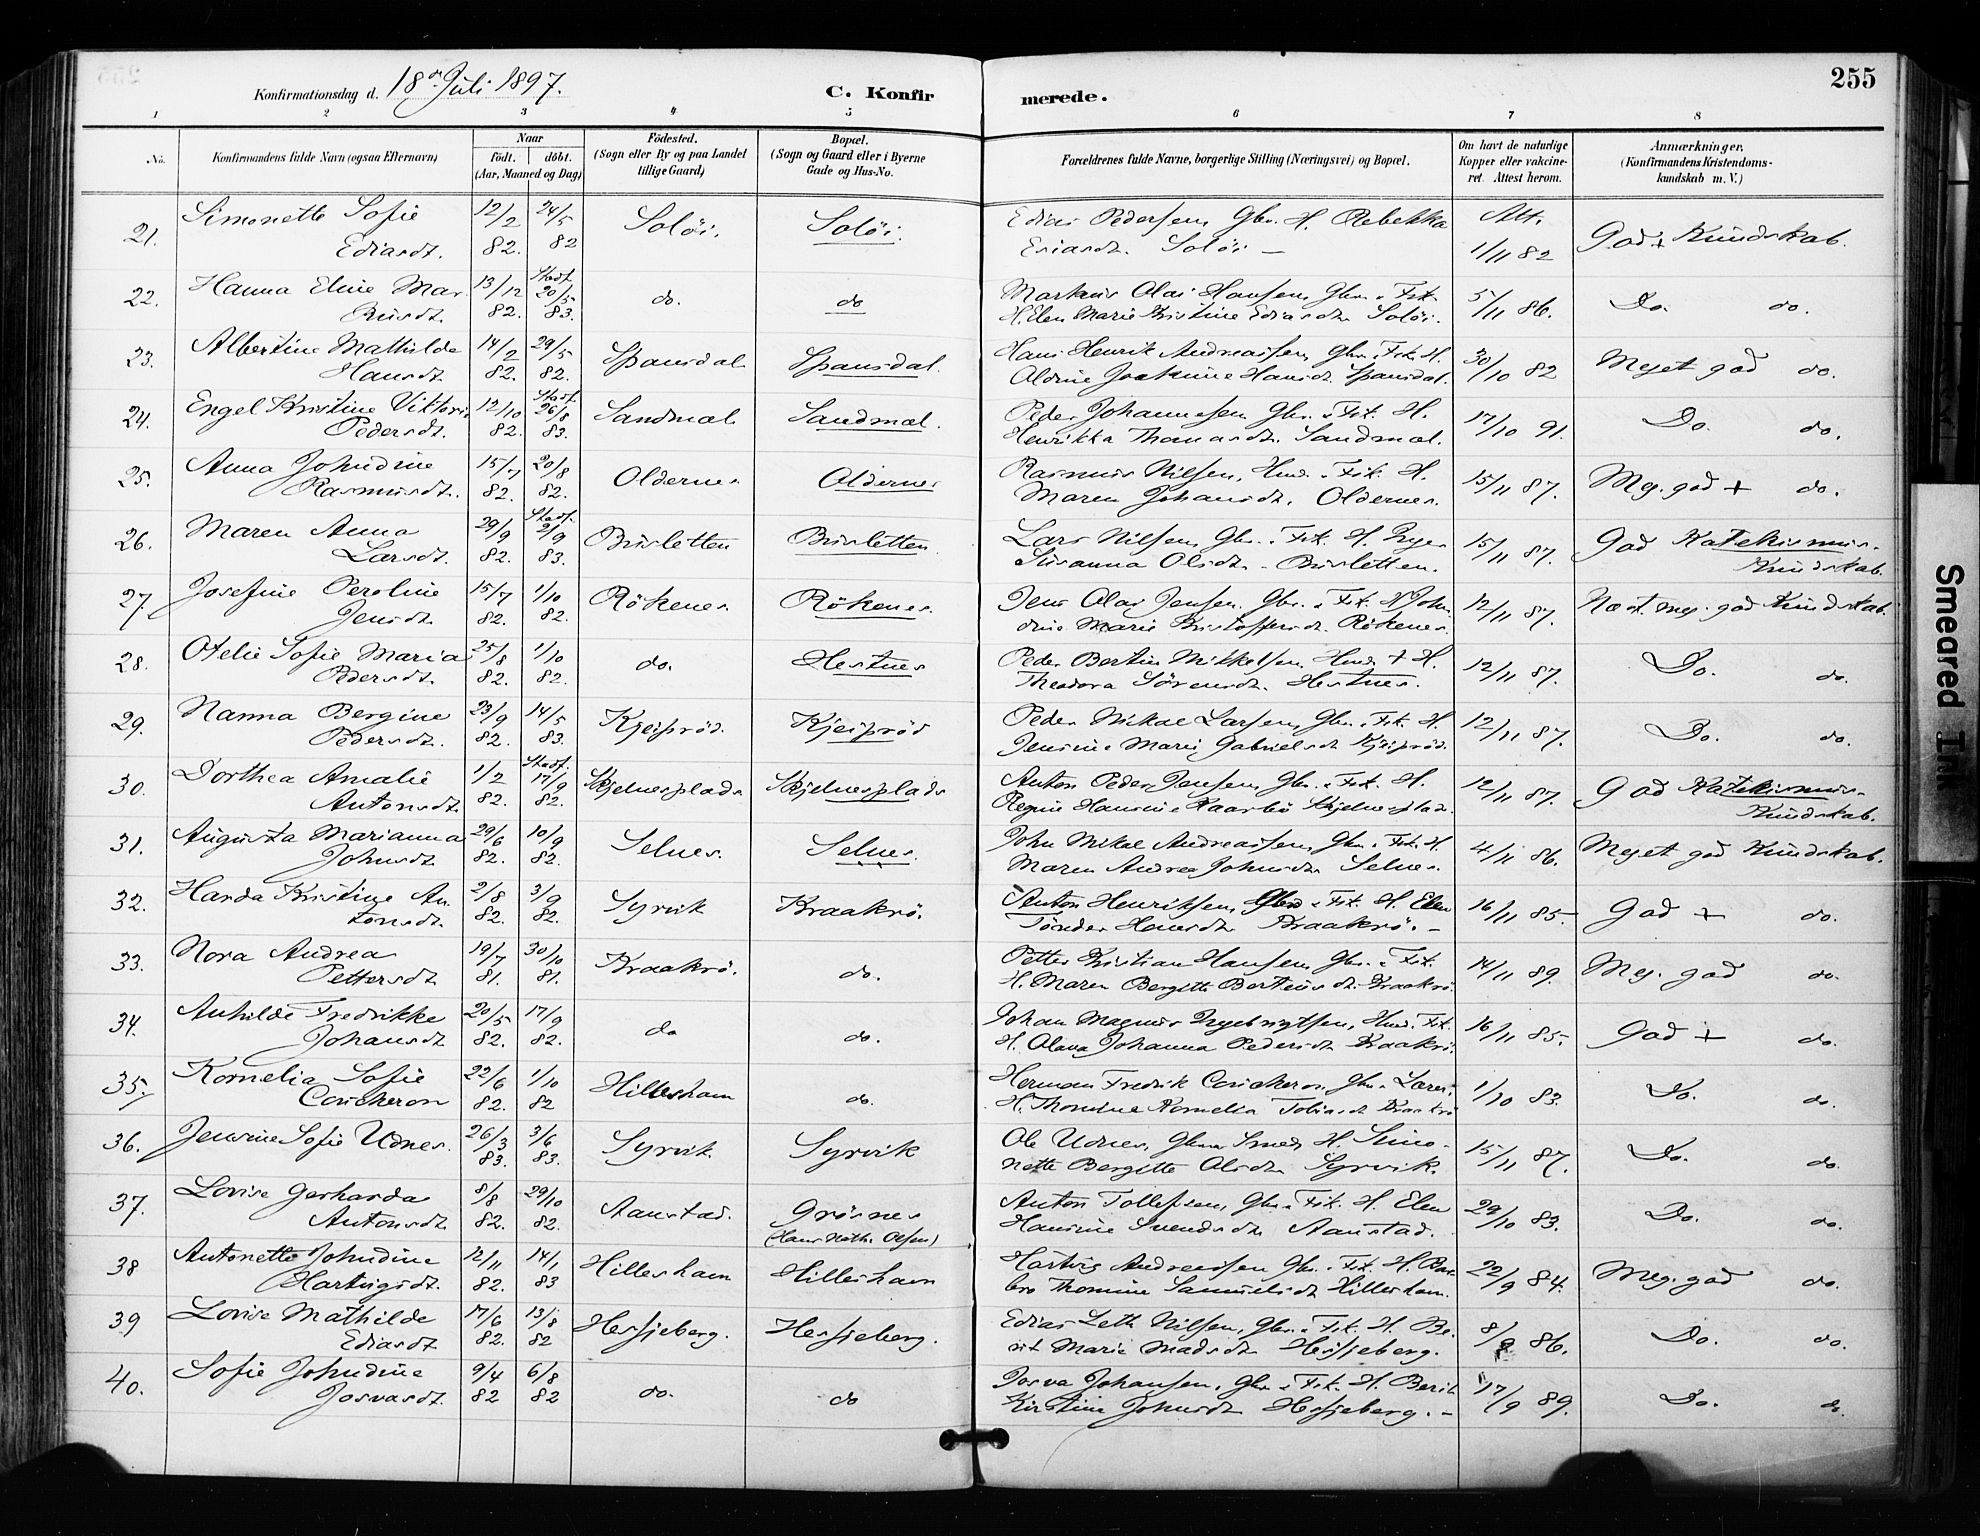 255
Konfirmationsdag d. 18de Juli 1897. C. Konfirmerede.
1 2 3 4 5 6 7 8
No. Konfirmandens fulde Navn (ogsaa Efternavn) Naar født. døbt. (Aar, Maaned og Dag) Fødested. (Sogn eller By og paa Landet tillige Gaard) Bopæl. (Sogn og Gaard eller i Byerne Gade og Hus-No. Forældrenes fulde Navne, borgerlige Stilling (Næringsvei) og Bopæl. Om havt de naturlige Kopper eller vakcineret. Attest herom. Anmærkninger. (Konfirmandens Kristendomskundskab m. V.)
21. Simonette Sofie 12/2 24/5 Soløi. Soløi. Edias Pedersen, Gbr. H. Rebekka Att. God + Kundskab.
Ediasdt. 82. 82 Esiasdt. Soløi — 1/11 82
22. Hanna Eline Mar- 13/12 Stadf. 20/5 do. do Markus Olai Hansen, Gbr. & Fisk. 5/11 86. Do. do.
kusdt. 82. 83. H. Elen Marie Kristine Ediasdt. Soløi.
23. Albertine Mathilde 14/2 29/5 Spansdal Spansdal. Hans Henrik Andreassen, Gbr. & Fisk. H. 30/10 82 Meget god do.
Hansdt. 82. 82. Aldine Joakime Hansdt. Spansdal.
24. Engel Kristine Viktoria 12/10 Stadf. 26/8 Sandmæl Sandmæl. Peder Johannesen Gbr. & Fisk. H. 17/10 91. Do. do.
Pedersdt. 82. 83. Henrikka Thomasdt. Sandmæl.
25. Anna Johndine 15/7 20/8 Oldernes Oldernes Rasmus Nilsen, Hmd. & Fisk. H. 15/11 87. Meg. god + do.
Rasmusdt. 82. 82. Maren Johansdt. Oldernes.
26. Maren Anna 29/9 Stadf. 2/9 Brusletten Brusletten Lars Nilsen, Gbr. & Fisk. H. Inger 15/11 87. God Katekismus-
Larsdt. 82. 83. Susanna Olsdt. Brusletten. Kundskab.
27. Josefine Peroline 15/7 1/10 Rökenes Rökenes. Jens Olai Jensen. Gbr. & Fisk. H. John- 12/11 87. Næst. meg. god Kundskab.
Jensdt. 82. 82. dine Marie Kristoffersdt. Rökenes.
28. Otelie Sofie Maria 25/8 1/10 do. Hestnes Peder Bertin Mikkelsen, Hmd. + H. 12/11 87. Do. do.
Pedersdt. 82. 82. Theodora Sörensdt. Hestnes.
29. Nanna Bergine 23/9 14/5 Kjeiprød. Kjeiprød Peder Mikal Larsen, Gbr. & Fisk. H. 12/11 87. Do. do.
Pedersdt. 82. 83. Jensine Marie Gabrielsdt. Kjeiprød.
30. Dorthea Amalie 1/2 Stadf. 17/9 Skjelnesplads Skjelnesplads Anton Peder Jensen, Gbr. & Fisk. H. 12/11 87. God Katekismus-
Antonsdt. 82. 82. Regine Hansine Kaarbö Skjelnesplads. Kundskab.
31. Augusta Marianna 29/6 10/9 Selnes. Selnes. John Mikal Andreassen, Gbr. & Fisk. H. 4/11 86. Meget god Kundskab.
Johnsdt. 82. 82. Maren Andrea Johnsdt. Selnes.
32. Harda Kristine An- 2/8 3/9 Syrvik Kraakrö. Anton Henriksen, Gbr. & Fisk. H. Elen 16/11 85. God + do.
tonsdt. 82. 82. Tönder Hansdt. Kraakrö. —
33. Nora Andrea 19/7 30/10 Kraakrö. do. Petter Kristian Hansen, Gbr. & Fisk. 14/11 89. Meg. god do.
Pettersdt 81. 81. H. Maren Bergitte Bertheusdt. Kraakrö.
34. Anhilde Fredrikke 20/5 17/9 do do. Johan Magnus Ingebrigtsen, Hmd. Fisk. 16/11 85. God + do.
Johansdt 82. 82. H. Olava Johanna Pedersdt Kraakrö.
35. Kornelia Sofie 22/6 1/10 Hillesham do. Herman Fredrik Coucheron, Gbr. & Lærer, 1/10 83. Do. do.
Coucheron 82. 82 H. Thomine Kornelia Tobiasdt Kraakrö
36. Jensine Sofie Udnes. 26/3 3/6 Syrvik Syrvik Ole Udnes, Gbr. & Smed, H. Simo- 15/11 87. Do. do.
83. 83. nette Bergitte Olsdt. Syrvik.
37. Lovise Gerharda 8/8 29/10 Aanstad. Grøsnes Anton Tollefsen, Gbr. & Fisk. H. Elen 29/10 83. Do. do.
Antonsdt 82. 82. (Hans Math. Olsen) Hansine Svendsdt. Aanstad.
38 Antonette Johndine 12/11 14/1 Hillesham Hillesham Hartvig Andreassen Gbr. & Fisk. H. Bar- 22/9 84. Meg. god do.
Hartvigsdt. 82. 83 bro Thomine Samuelsdt Hillesham.
39 Lovise Mathilde 17/6 13/8 Hessjeberg. Hessjeberg. Edias Zeth Nilsen, Gbr. & Fisk. H. Be- 8/9 86. Do. do.
Ediasdt 82. 82 rit Marie Madsdt Hessjeberg.
40. Sofie Johndine 9/4 6/8 do. do Josva Johansen, Gbr. & Fisk. H. Berit 17/9 89. Do. do
Josvasdt. 82 82 Kirstine Johnsdt Hessjeberg. —
Smeared Ink